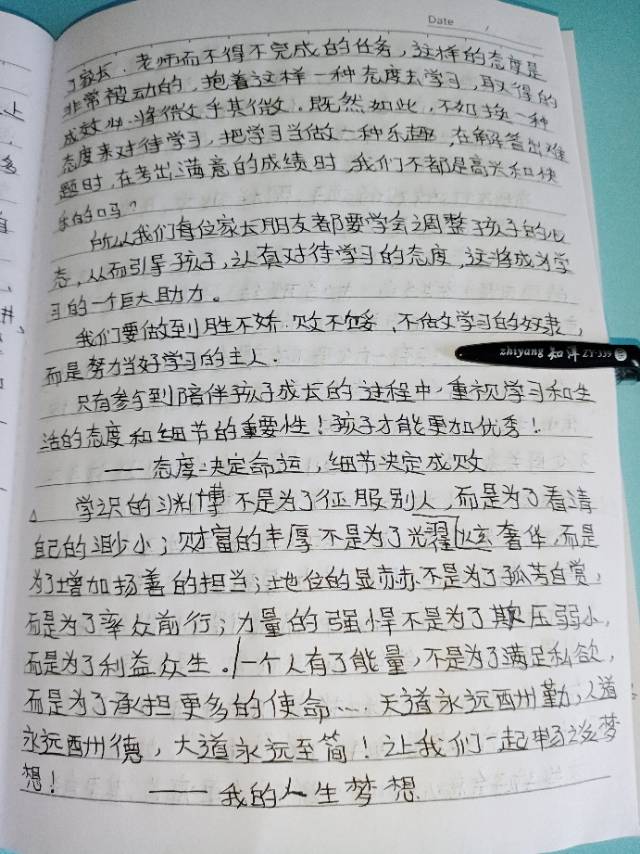 Date
了家长、老师而不得不完成的任务,这样的态度是
非常被动的,抱着这样一种态度去学习,取得的
成效必将微乎其微。既然如此,不如换一种
态度来对待学习,把学习当做一种乐趣,在解答出难
题时,在考出满意的成绩时,我们不都是高兴和快
乐的吗?
所以我们每位家长朋友都要学会调整孩子的心
态,从而引导孩子,认真对待学习的态度,这将成为学
习的一个巨大助力。
我们要做到胜不娇.败不馁,不做学习的奴隶,
而是努力当好学习的主人.
zhiyang 知洋 ZY-339
只有参与到陪伴孩子成长的过程中,重视学习和生
活的态度和细节的重要性!孩子才能更加优秀!
——态度决定命运,细节决定成败
学识的渊博不是为了征服别人,而是为了看清
自己的渺小;财富的丰厚不是为了光耀炫奢华,而是
为了增加扬善的担当;地位的显赫不是为了孤芳自赏,
而是为了率众前行;力量的强悍不是为了欺压弱小,
而是为了利益众生。一个人有了能量,不是为了满足私欲,
而是为了承担更多的使命… 天道永远酬勤;人道
永远酬德,大道永远至简!让我们一起畅谈梦
想!——我的人生梦想